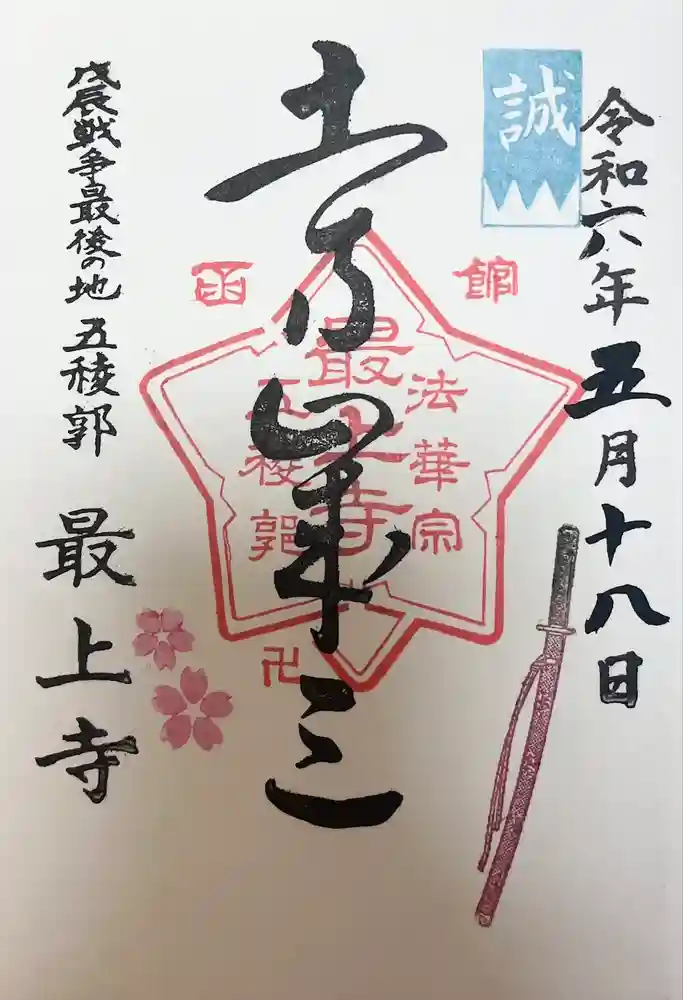 令和六年五月十八日
誠
土方歳三
函館
法華宗
最上寺
五稜郭
卍
戊辰戦争最後の地 五稜郭
最上寺